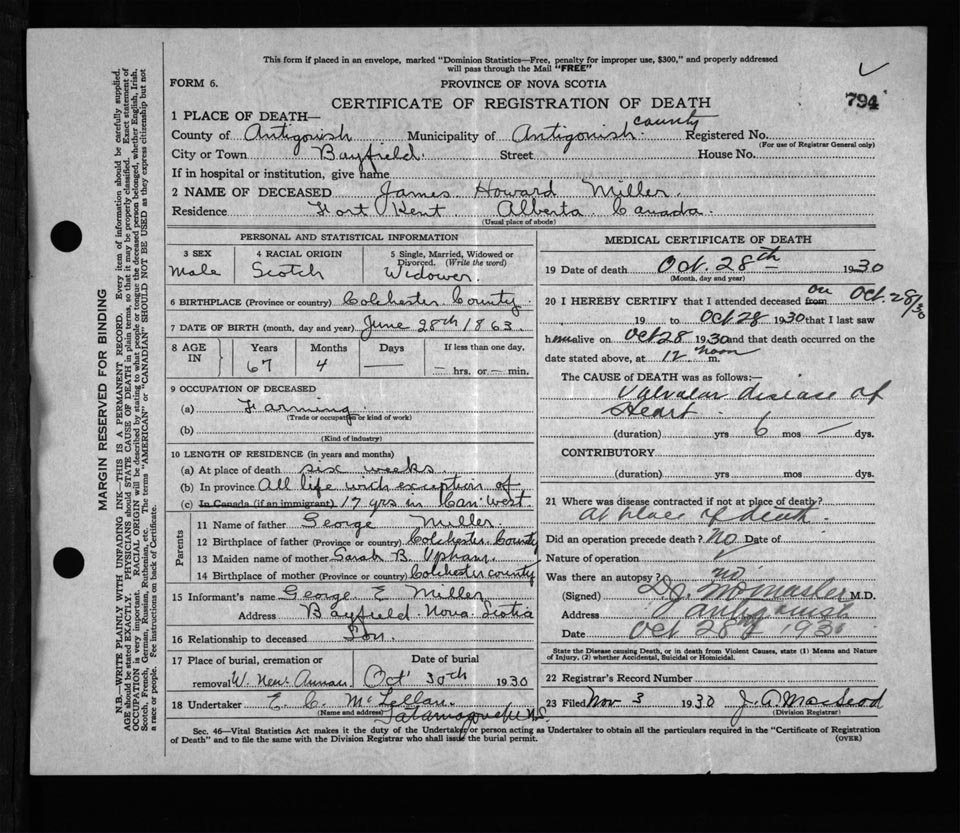 This form if placed in an envelope, marked "Dominion Statistics—Free, penalty for improper use, $300," and properly addressed
will pass through the Mail "FREE"
FORM 6.
PROVINCE OF NOVA SCOTIA
794
CERTIFICATE OF REGISTRATION OF DEATH
1 PLACE OF DEATH—
County of Antigonish Municipality of Antigonish county Registered No.
(For use of Registrar General only)
City or Town Bayfield. Street House No.
If in hospital or institution, give name
2 NAME OF DECEASED James Howard Miller.
Residence Fort Kent Alberta Canada.
(Usual place of abode)
PERSONAL AND STATISTICAL INFORMATION
3 SEX
Male
4 RACIAL ORIGIN
Scotch
5 Single, Married, Widowed or
Divorced. (Write the word)
Widower.
6 BIRTHPLACE (Province or country) Colchester County
7 DATE OF BIRTH (month, day and year) June 28th 1863.
8 AGE IN
Years Months Days If less than one day,
67 4 — — hrs. or — min.
9 OCCUPATION OF DECEASED
(a) Farming.
(Trade or occupation or kind of work)
(b)
(Kind of industry)
10 LENGTH OF RESIDENCE (in years and months)
(a) At place of death six weeks.
(b) In province All life with exception of
(c) In Canada (if an immigrant) 17 yrs in Can West.
Parents
11 Name of father George Miller.
12 Birthplace of father (Province or country) Colchester County
13 Maiden name of mother Sarah B. Upham.
14 Birthplace of mother (Province or country) Colchester county
15 Informant's name George E Miller
Address Bayfield Nova Scotia
16 Relationship to deceased Son.
17 Place of burial, cremation or
removal W. New Annan
Date of burial
Oct 30th 1930
18 Undertaker E. C. McLellan.
(Name and address) Tatamagouche N.S.
MEDICAL CERTIFICATE OF DEATH
19 Date of death Oct. 28th 1930
(Month, day and year)
20 I HEREBY CERTIFY that I attended deceased from on Oct. 28/30
19 to Oct 28 1930 that I last saw
him alive on Oct 28 1930 and that death occurred on the
date stated above, at 12 noon m.
The CAUSE of DEATH was as follows:—
Valvular disease of
Heart
(duration) yrs 6 mos — dys.
CONTRIBUTORY
(duration) yrs mos dys.
21 Where was disease contracted if not at place of death?
At place of death.
Did an operation precede death? No Date of
Nature of operation
Was there an autopsy? no
(Signed) M.D.
Address Antigonish
Date Oct 28 1930
State the Disease causing Death, or in death from Violent Causes, state (1) Means and Nature
of Injury, (2) whether Accidental, Suicidal or Homicidal.
22 Registrar's Record Number
23 Filed Nov 3 1930 J. A. MacLeod
(Division Registrar)
Sec. 46—Vital Statistics Act makes it the duty of the Undertaker or person acting as Undertaker to obtain all the particulars required in the "Certificate of Registration
of Death" and to file the same with the Division Registrar who shall issue the burial permit.
(OVER)
MARGIN RESERVED FOR BINDING
N.B.—WRITE PLAINLY WITH UNFADING INK—THIS IS A PERMANENT RECORD. Every item of information should be carefully supplied.
AGE should be stated EXACTLY. PHYSICIANS should STATE CAUSE OF DEATH in plain terms, so that it may be properly classified. Exact statement of
OCCUPATION is very important. RACIAL ORIGIN will be described by stating to what people or tongue the deceased person belonged, whether English, Irish,
Scotch, French, German, Russian, Ruthenian, etc. The terms "AMERICAN" or "CANADIAN" SHOULD NOT BE USED as they express citizenship but not
a race or people. See instructions on back of Certificate.